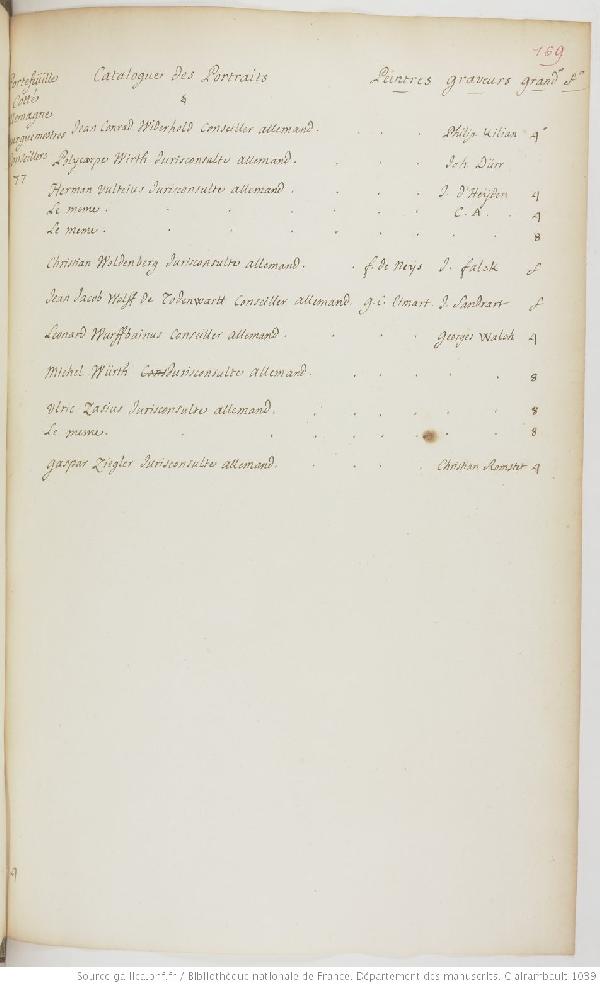 169
Portefeuille Catalogue des Portraits Peintres graveurs grandr
Cotté
allemagne
Bourguemestres
Conseillers
77
Jean Conrad Widerhold Conseiller allemand. Philip Kilian 4°
Polycarpe Wirth Jurisconsulte allemand. Joh. Dürr
Herman Vulteius Jurisconsulte allemand. J. d'Heyden 4
Le meme. C. A. 4
Le meme. 8
Christian Woldenberg Jurisconsulte allemand. f. de Neys J. falck f
Jean Jacob Wolff de Todenwartt Conseiller allemand. g. C. Eimart. J. Sandrart f
Leonard Wurffbainus Conseiller allemand. Georges Walch 4
Michel Würth Jurisconsulte allemand. 8
Ulric Zasius Jurisconsulte allemand. 8
Le meme. 8
Gaspar Ziegler Jurisconsulte allemand. Christian Romstet 4
Source gallica.bnf.fr / Bibliothèque nationale de France. Département des manuscrits. Clairambault 1039